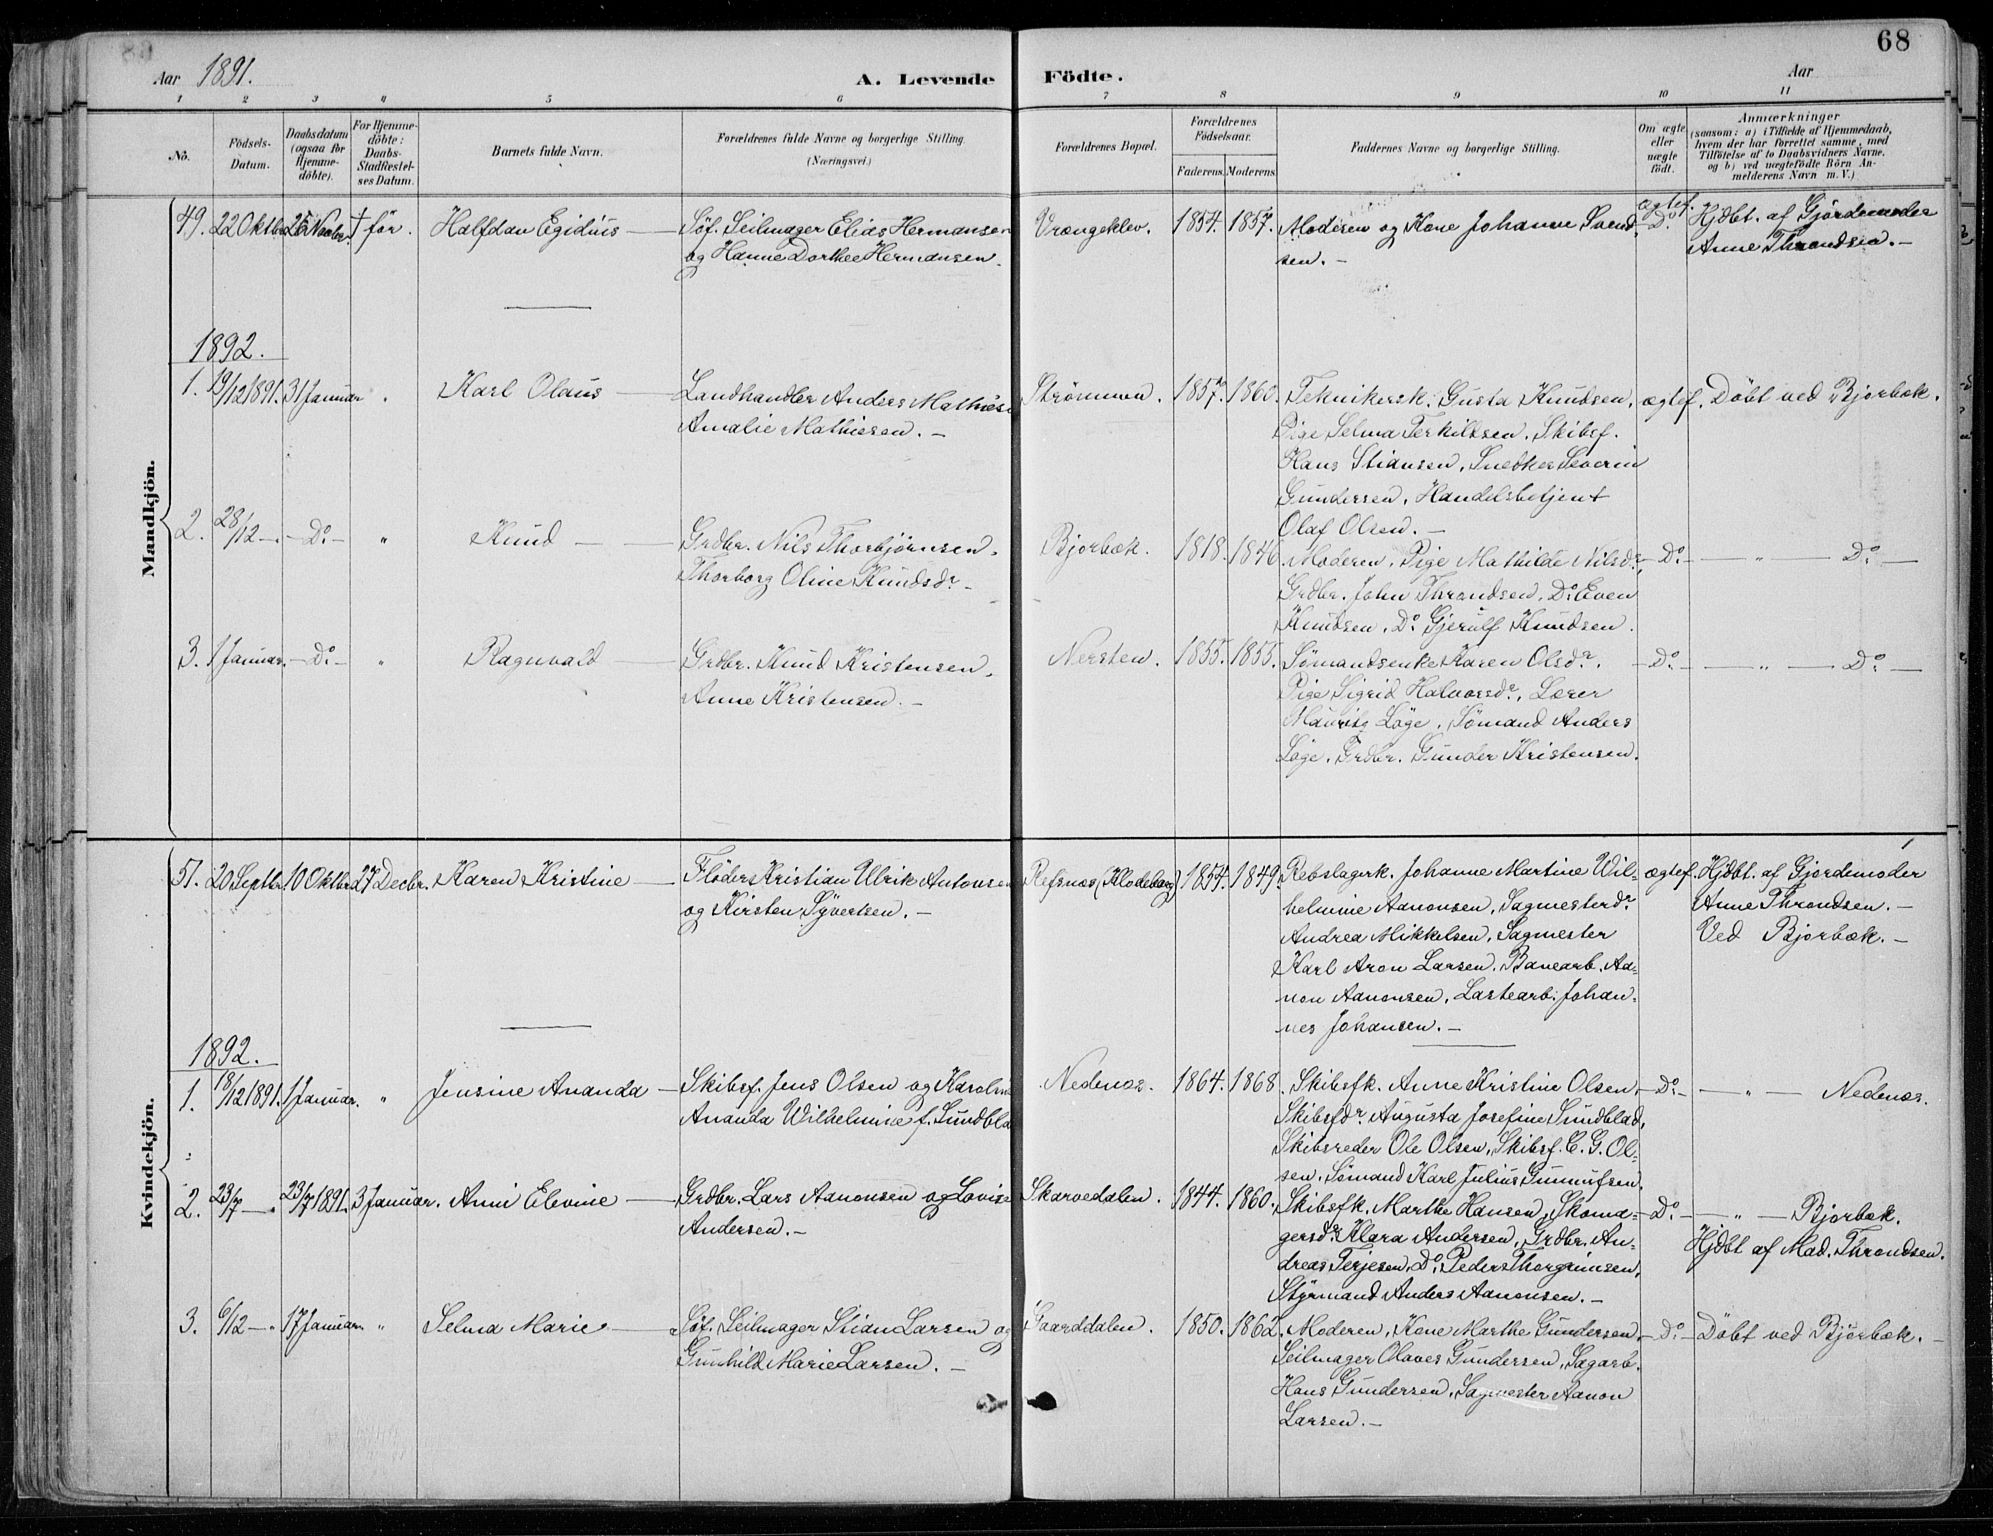 68
Aar 1891. A. Levende Födte. Aar
1 2 3 4 5 6 7 8 9 10 11
No.
Födsels-
Datum.
Daabsdatum
(ogsaa for
Hjemme-
döbte).
For Hjemme-
döbte:
Daabs-
Stadfæstel-
ses Datum.
Barnets fulde Navn.
Forældrenes fulde Navne og borgerlige Stilling.
(Næringsvei.)
Forældrenes Bopæl.
Forældrenes
Födselsaar.
Faderens. Moderens.
Faddernes Navne og borgerlige Stilling.
Om ægte
eller
uægte
födt.
Anmærkninger
(saasom: a) i Tilfælde af Hjemmedaab,
hvem der har forrettet samme, med
Tilföielse af to Daabsvidners Navne,
og b) ved uægtefödte Börn An-
melderens Navn m. V.)
Mandkjön.
49. 22 Oktbr. 25 Novbr. † før. Halfdan Egidius — Søf. Seilmager Elias Hermansen
og Hanne Dorthee Hermansen.
Vrængeklev. 1854. 1857. Moderen og Kone Johanne Svend-
sen. —
ægtef.
— Do Hjdbt. af Gjördemoder
Anne Throndsen. —
1892.
1. 19/12 1891. 31 Januar „ Karl Olaus — Landhandler Anders Mathiesen
Amalie Mathiesen. —
Strömmen. 1857. 1860. Teknikersk. Gusta Knudsen,
Pige Selma Terkildsen, Skibsf.
Hans Stiansen, Snedker Severin
Gundersen, Handelsbetjent
Olaf Olsen. —
ægtef. Döbt ved Bjorbæk.
2. 28/12 —. — Do — „ Knud — — Grdbr. Nils Thorbjörnsen,
Thorborg Oline Knudsdr. —
Bjorbæk. 1818. 1846. Moderen, Pige Mathilde Nilsdr,
Grdbr. John Throndsen, Do Even
Knudsen, Do Gjerulf Knudsen.
— Do — — „ — Do —
3. 1 Januar. — Do — „ Ragnvald — Grdbr. Knud Kristensen,
Anne Kristensen. —
Nersten. 1855. 1855. Sømandsenke Karen Olsdr,
Pige Sigrid Halvorsdr, Lærer
Mauritz Løge, Sømand Anders
Løge, Grdbr. Gunder Kristensen.
— Do — — „ — Do —
Kvindekjön.
51. 20 Septbr. 10 Oktbr. 27 Decbr. Karen Kristine — Fløder Kristian Ulrik Antonsen
og Kirsten Syvertsen. —
Refsnæs (Klodeborg) 1854. 1849. Rebslagerk. Johanne Martine Wil-
helmine Aanonsen, Sagmesterdr
Andrea Mikkelsen, Sagmester
Karl Aron Larsen, Banearb. Aa-
non Aanonsen, Lastearb. Johan-
nes Johansen. —
ægtef. Hjdbt. af Gjordemoder
Anne Throndsen. —
Ved Bjorbæk. —
1892.
1. 18/12 1891. 1 Januar. „ Jensine Ananda — Skibsf. Jens Olsen og Karoline
Ananda Wilhelmine f. Sundblad
Nedenæs. 1864. 1868. Skibsfk. Anne Kristine Olsen,
Skibsfdr Augusta Josefine Sundblad,
Skibsreder Ole Olsen, Skibsf. C. G. Ol-
sen, Sømand Karl Julius Gunnufsen.
— Do — — „ — Nedenæs.
2. 23/7 — 23/7 1891. 3 Januar. Anni Elevine — Grdbr. Lars Aanonsen og Lovise
Andersen. —
Skarvedalen. 1844. 1860. Skibsfk. Marthe Hansen, Skoma-
gersdr Klara Andersen, Grdbr. An-
dreas Terjesen, Do Peder Thorgrimsen,
Styrmand Anders Aanonsen. —
— Do — — „ — Bjorbæk.
Hjdbt af Mad. Throndsen.
3. 6/12 — „ 17 Januar. „ Selma Marie — Søf. Seilmager Stian Larsen og
Gunhild Marie Larsen. —
Gaarddalen. 1850. 1862. Moderen, Kone Marthe Gundersen,
Seilmager Olaves Gundersen, Sagarb.
Hans Gundersen, Sagmester Aanon
Larsen. —
— Do — Döbt ved Bjorbæk. —